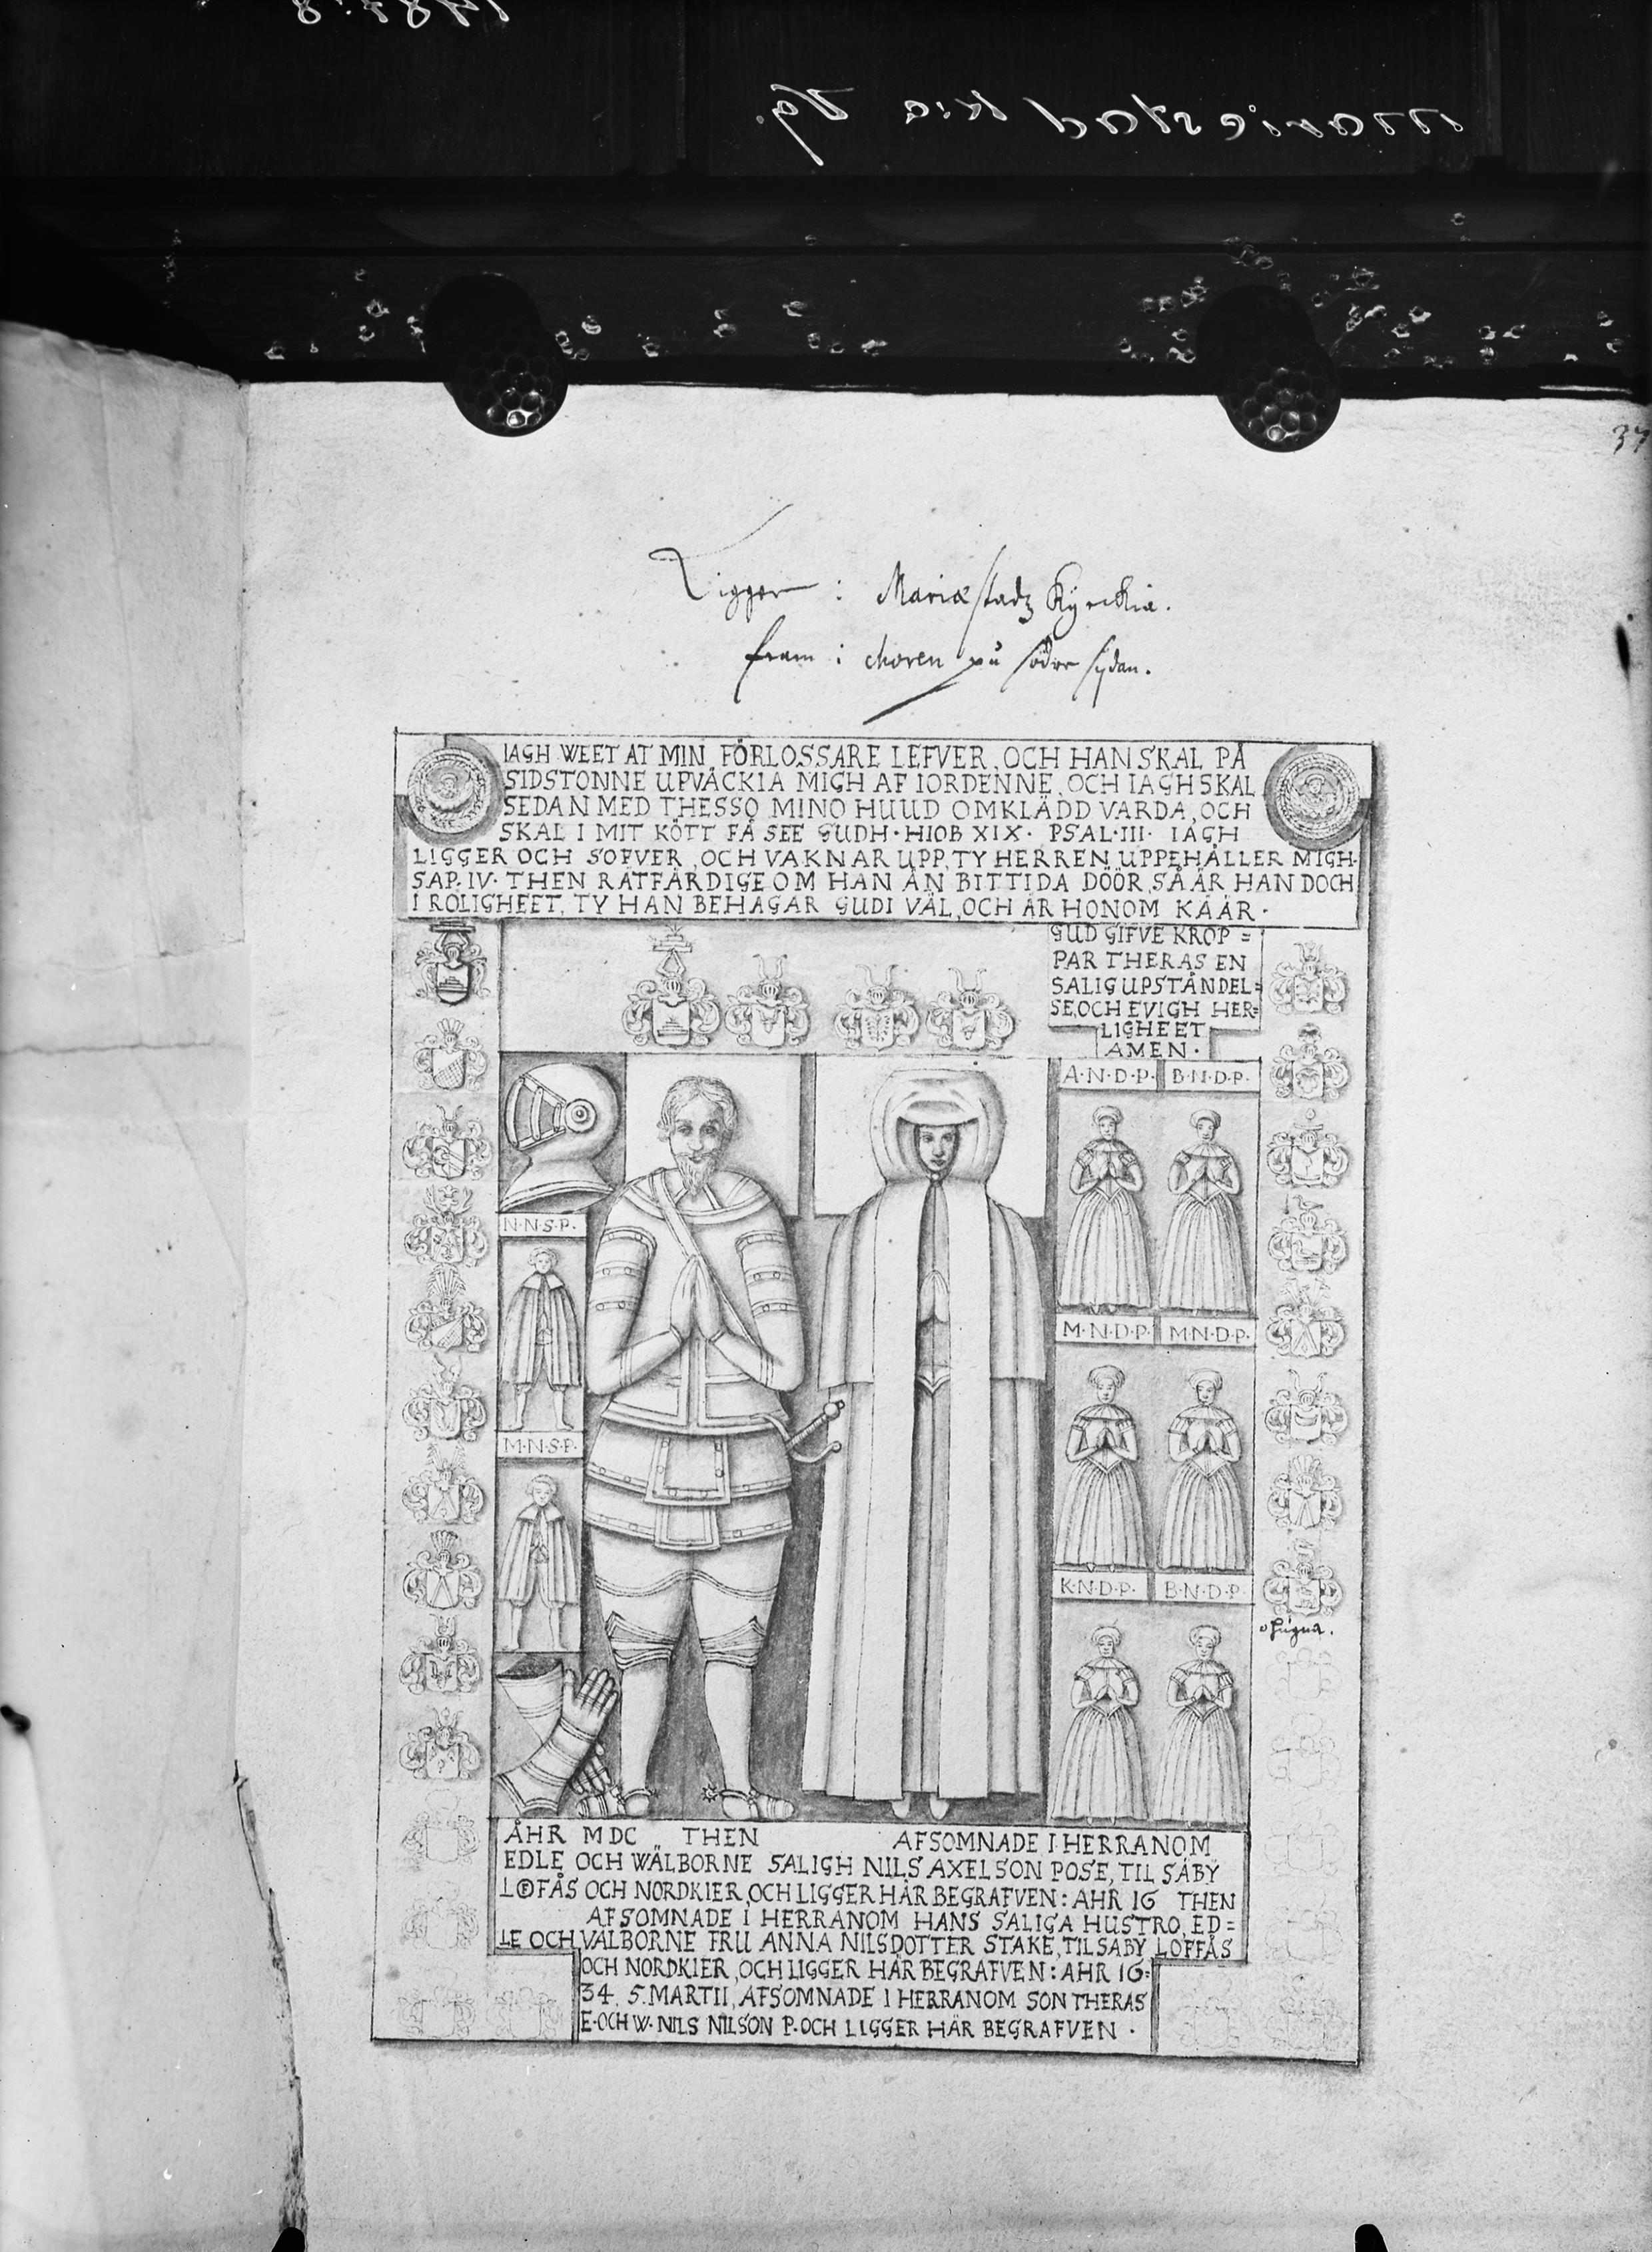 Mariestad k:a Vg.
37
Ligger i Mariæstadz Kÿrckia.
fram i choren på södre sÿdan.
IAGH WEET AT MIN FÖRLOSSARE LEFVER, OCH HAN SKAL PÅ
SIDSTONNE UPVÄCKIA MIGH AF IORDENNE, OCH IAGH SKAL
SEDAN MED THESSO MINO HUUD OMKLÄDD VARDA, OCH
SKAL I MIT KÖTT FÅ SEE GUDH · HIOB XIX · PSAL · III · IAGH
LIGGER OCH SOFVER, OCH VAKNAR UPP, TY HERREN UPPEHÅLLER MIGH ·
SAP · IV · THEN RÄTFÄRDIGE OM HAN ÄN BITTIDA DÖÖR, SÅ ÄR HAN DOCH
I ROLIGHEET, TY HAN BEHAGAR GUDI VÄL, OCH ÄR HONOM KÄÄR ·
GUD GIFVE KROP =
PAR THERAS EN
SALIG UPSTÅNDEL =
SE, OCH EVIGH HER =
LIGHEET
AMEN ·
A · N · D · P · B · N · D · P ·
N · N · S · P ·
M · N · D · P · M · N · D · P ·
M · N · S · P ·
K · N · D · P · B · N · D · P ·
ÅHR MDC THEN AFSOMNADE I HERRANOM
EDLE OCH WÄLBORNE SALIGH NILS AXELSON POSE, TIL SÄBY
LOFÅS OCH NORDKIER, OCH LIGGER HÄR BEGRAFVEN : AHR 16 THEN
AFSOMNADE I HERRANOM HANS SALIGA HUSTRO, ED =
LE OCH VÄLBORNE FRU ANNA NILSDOTTER STAKE, TIL SÄBY LOFFÅS
OCH NORDKIER, OCH LIGGER HÄR BEGRAFVEN : AHR 16 :
34. 5. MARTII, AFSOMNADE I HERRANOM SON THERAS
E · OCH W · NILS NILSON P · OCH LIGGER HÄR BEGRAFVEN ·